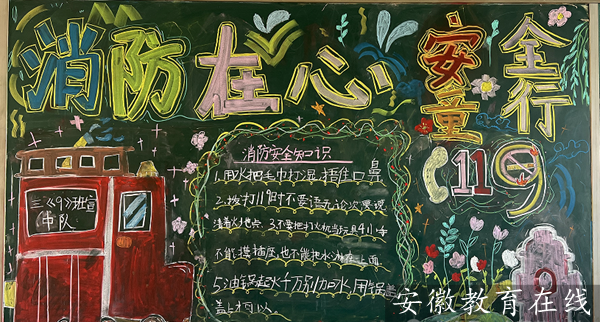 消防在心
安全童行
119
消防安全知识
1.用水把毛巾打湿捂住口鼻
2.拨打119时不要语无论次要说
清着火地点 3.不要把打火机当玩具4小手
不能摸插座,也不能把水洒在上面
5:油锅起火千万别加水,用锅
盖上
三《9》班宣
中队
119
安徽教育在线